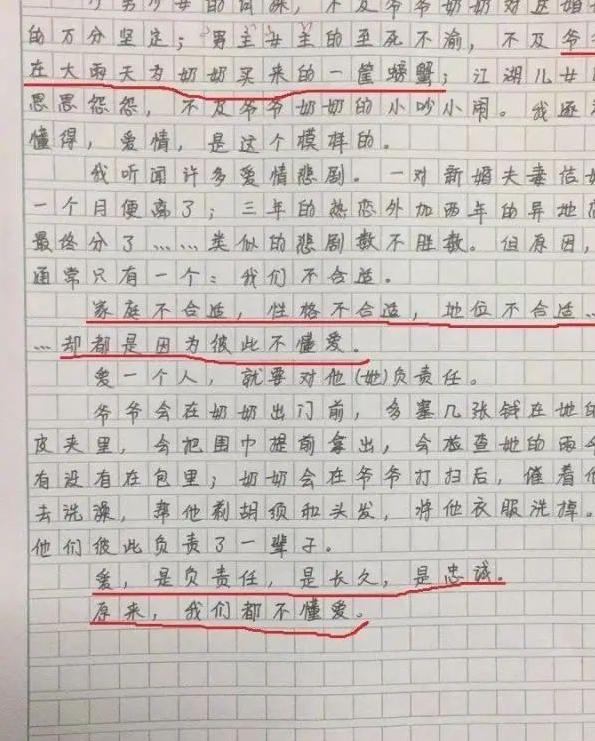 少男少女的
，不及爷爷奶奶对
的万分坚定；男主女主的至死不渝，不及爷
在大雨天为奶奶买来的一筐螃蟹；江湖儿女
恩恩怨怨，不及爷爷奶奶的小吵小闹。我逐
懂得，爱情，是这个模样的。
我听闻许多爱情悲剧。一对新婚夫妻结婚
一个月便离了；三年的热恋外加两年的异地恋
最终分了……类似的悲剧数不胜数。但原因，
通常只有一个：我们不合适。
家庭不合适，性格不合适，地位不合适…
…却都是因为彼此不懂爱。
爱一个人，就要对他(她)负责任。
爷爷会在奶奶出门前，多塞几张钱在她的
皮夹里，会把围巾提前拿出，会检查她的雨伞
有没有在包里；奶奶会在爷爷打扫后，催着他
去洗澡，帮他剃胡须和头发，将他衣服洗掉。
他们彼此负责了一辈子。
爱，是负责任，是长久，是忠诚。
原来，我们都不懂爱。